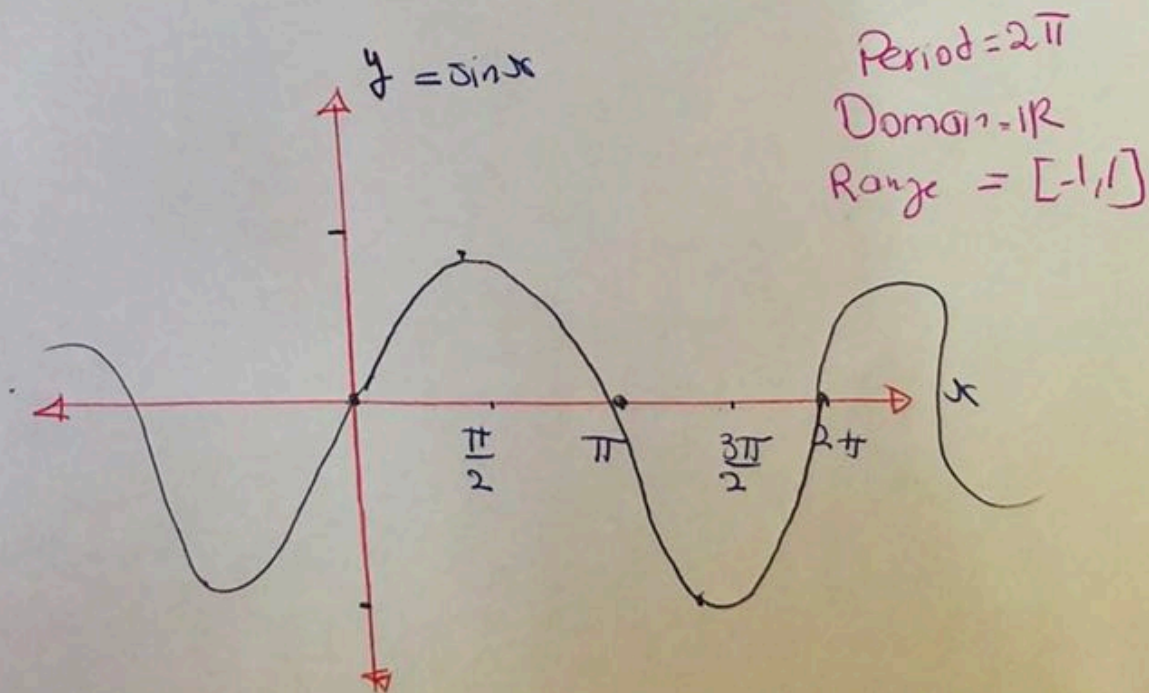 y = sinx
Period = 2π
Domain = ℝ
Range = [-1,1]
π/2
π
3π/2
2π
x